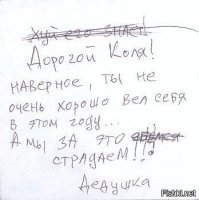 Хуй его знает!
Дорогой Коля!
Наверное, ты не
очень хорошо вел себя
в этом году...
А мы за это
страдаем!!!
Дедушка
Fishki.net